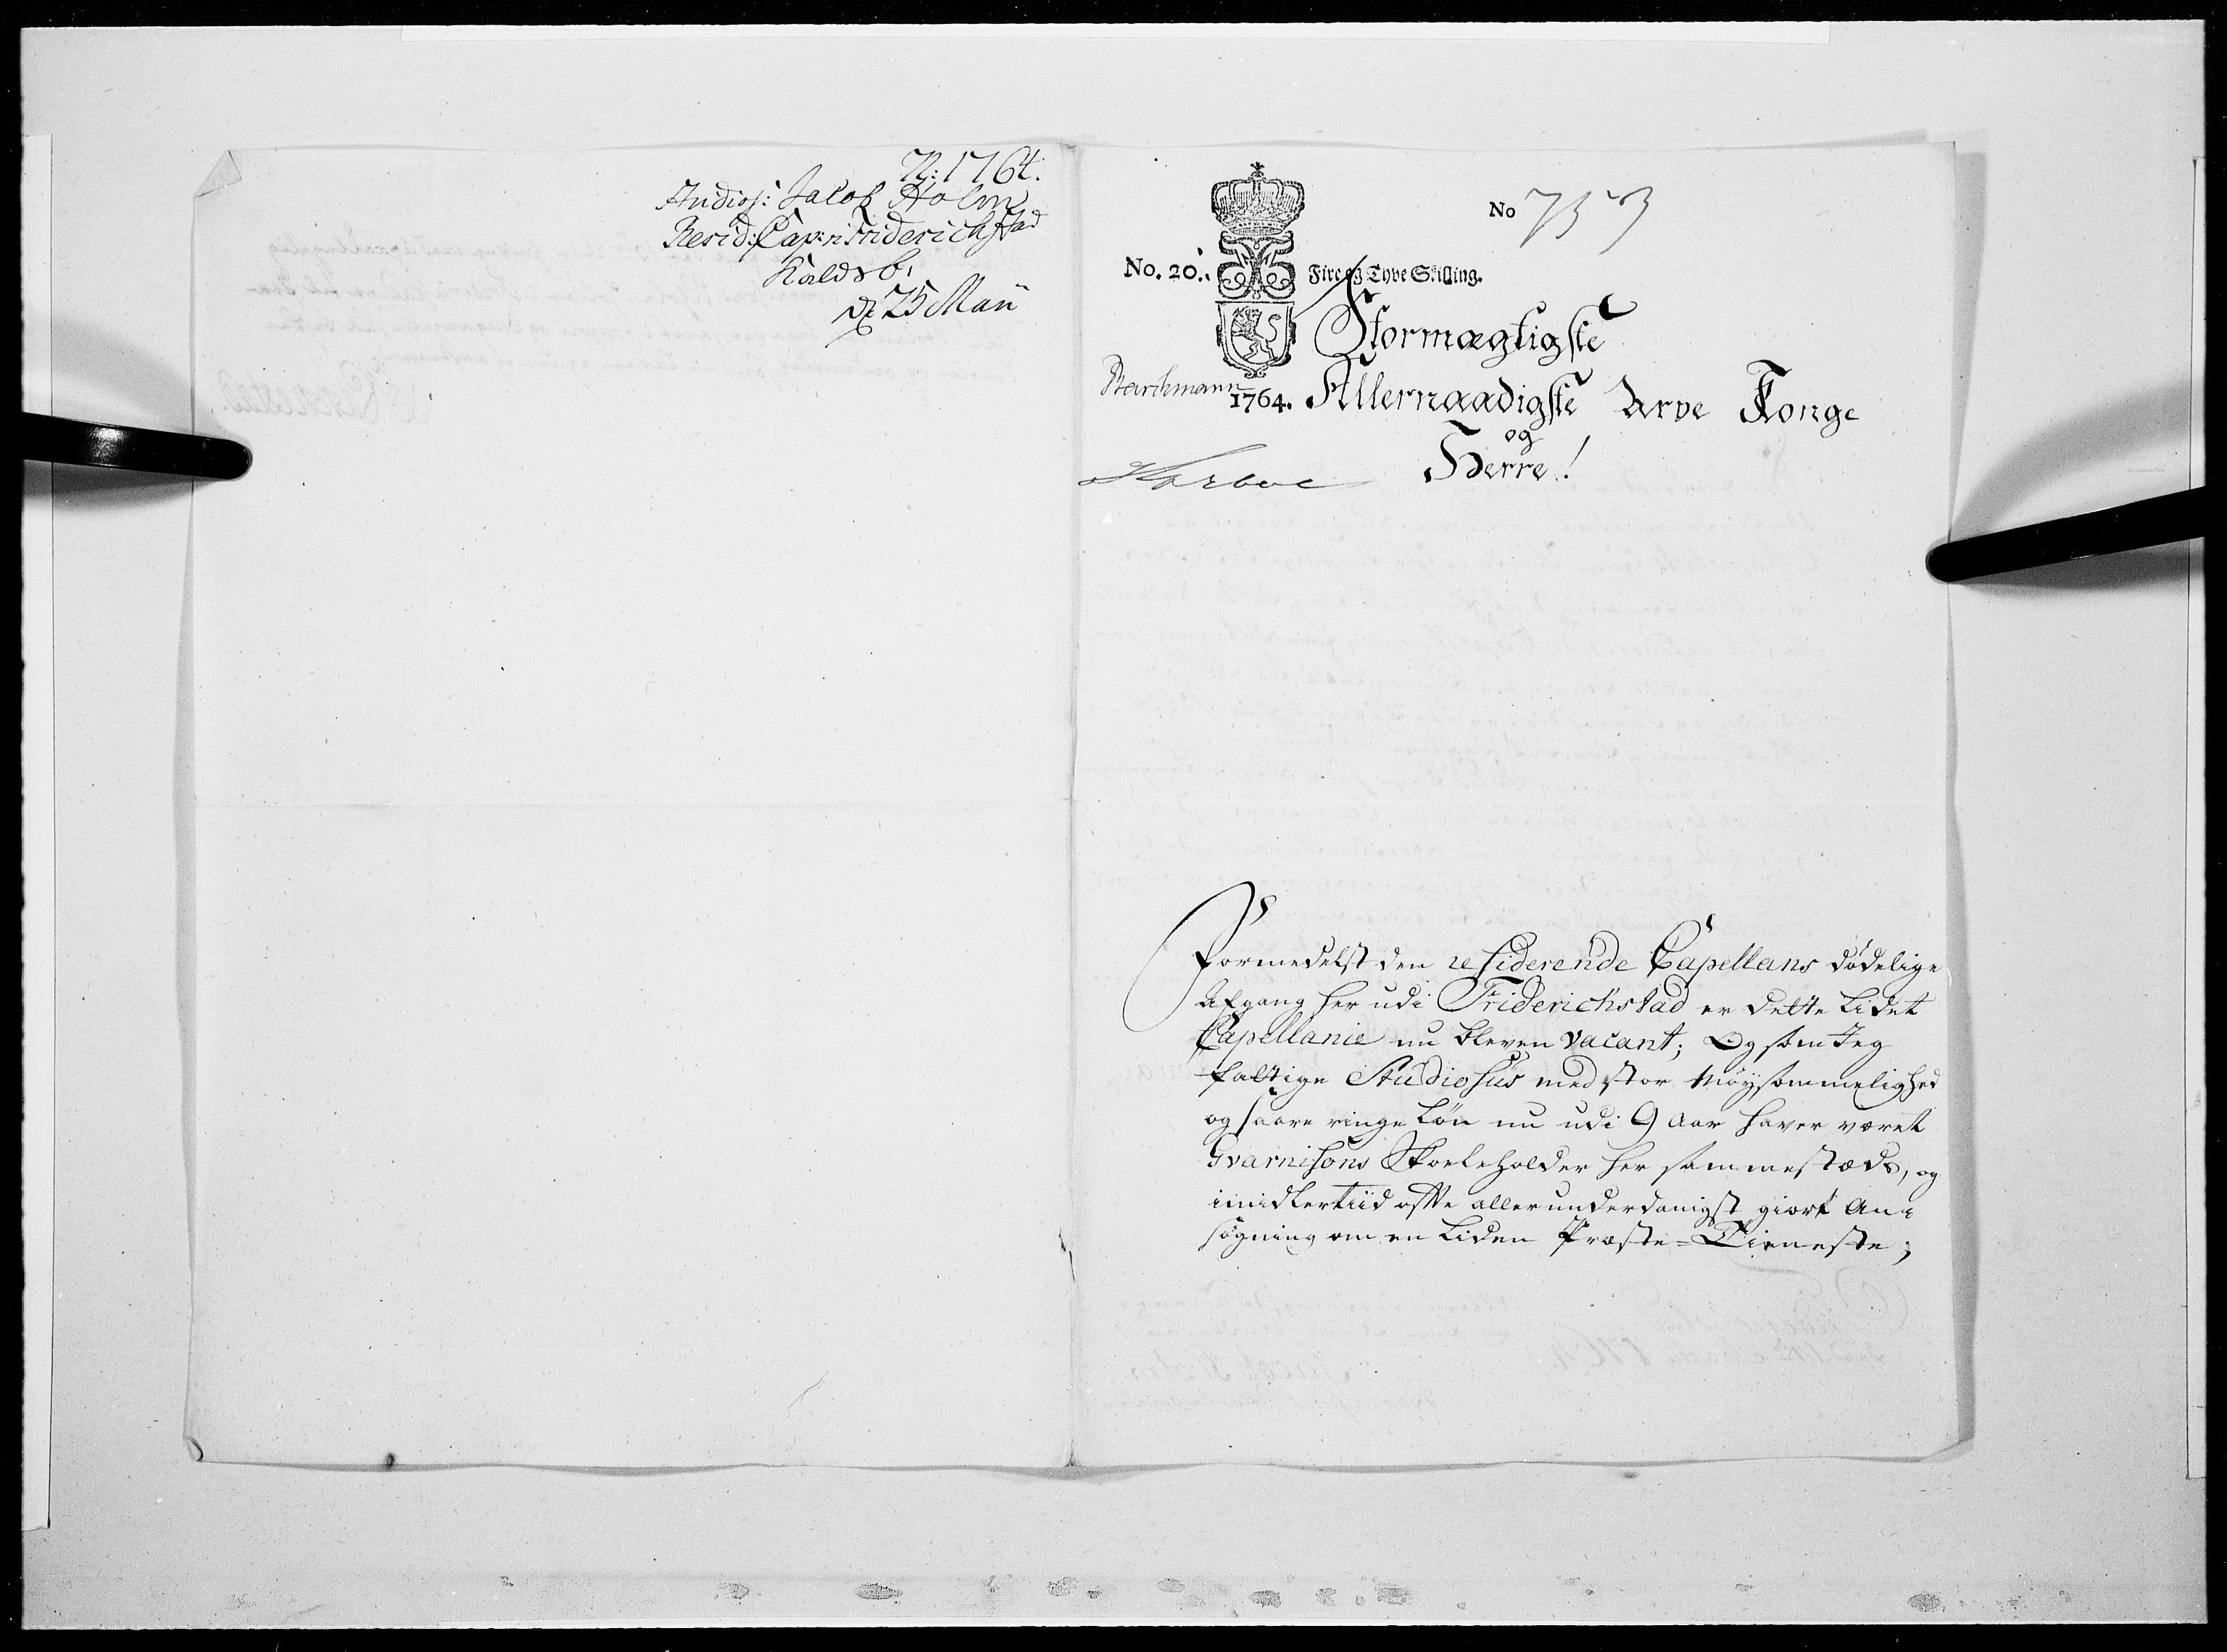 N: 1764.
Studios: Jacob Holm
Resid: Cap: i Friderichstad
Kalds b:
d: 25 Maii
No 753
No. 20. Fire og Tyve Skilling.
Stormægtigste
1764. Allernaadigste Arve Konge
og
Herre!
Formedelst den residerende Capellans dödelige
Afgang her udi Friderichstad er dette lidet
Capellanie nu bleven vacant; Og som Jeg
fattige Studiosus med stor Möysommelighed
og saare ringe Lön nu udi 9 Aar haver været
Gvarnisons Skoeleholder her sammestæds, og
imidlertiid ofte allerunderdanigst giort An=
sögning om en liden Præste=Tieneste;